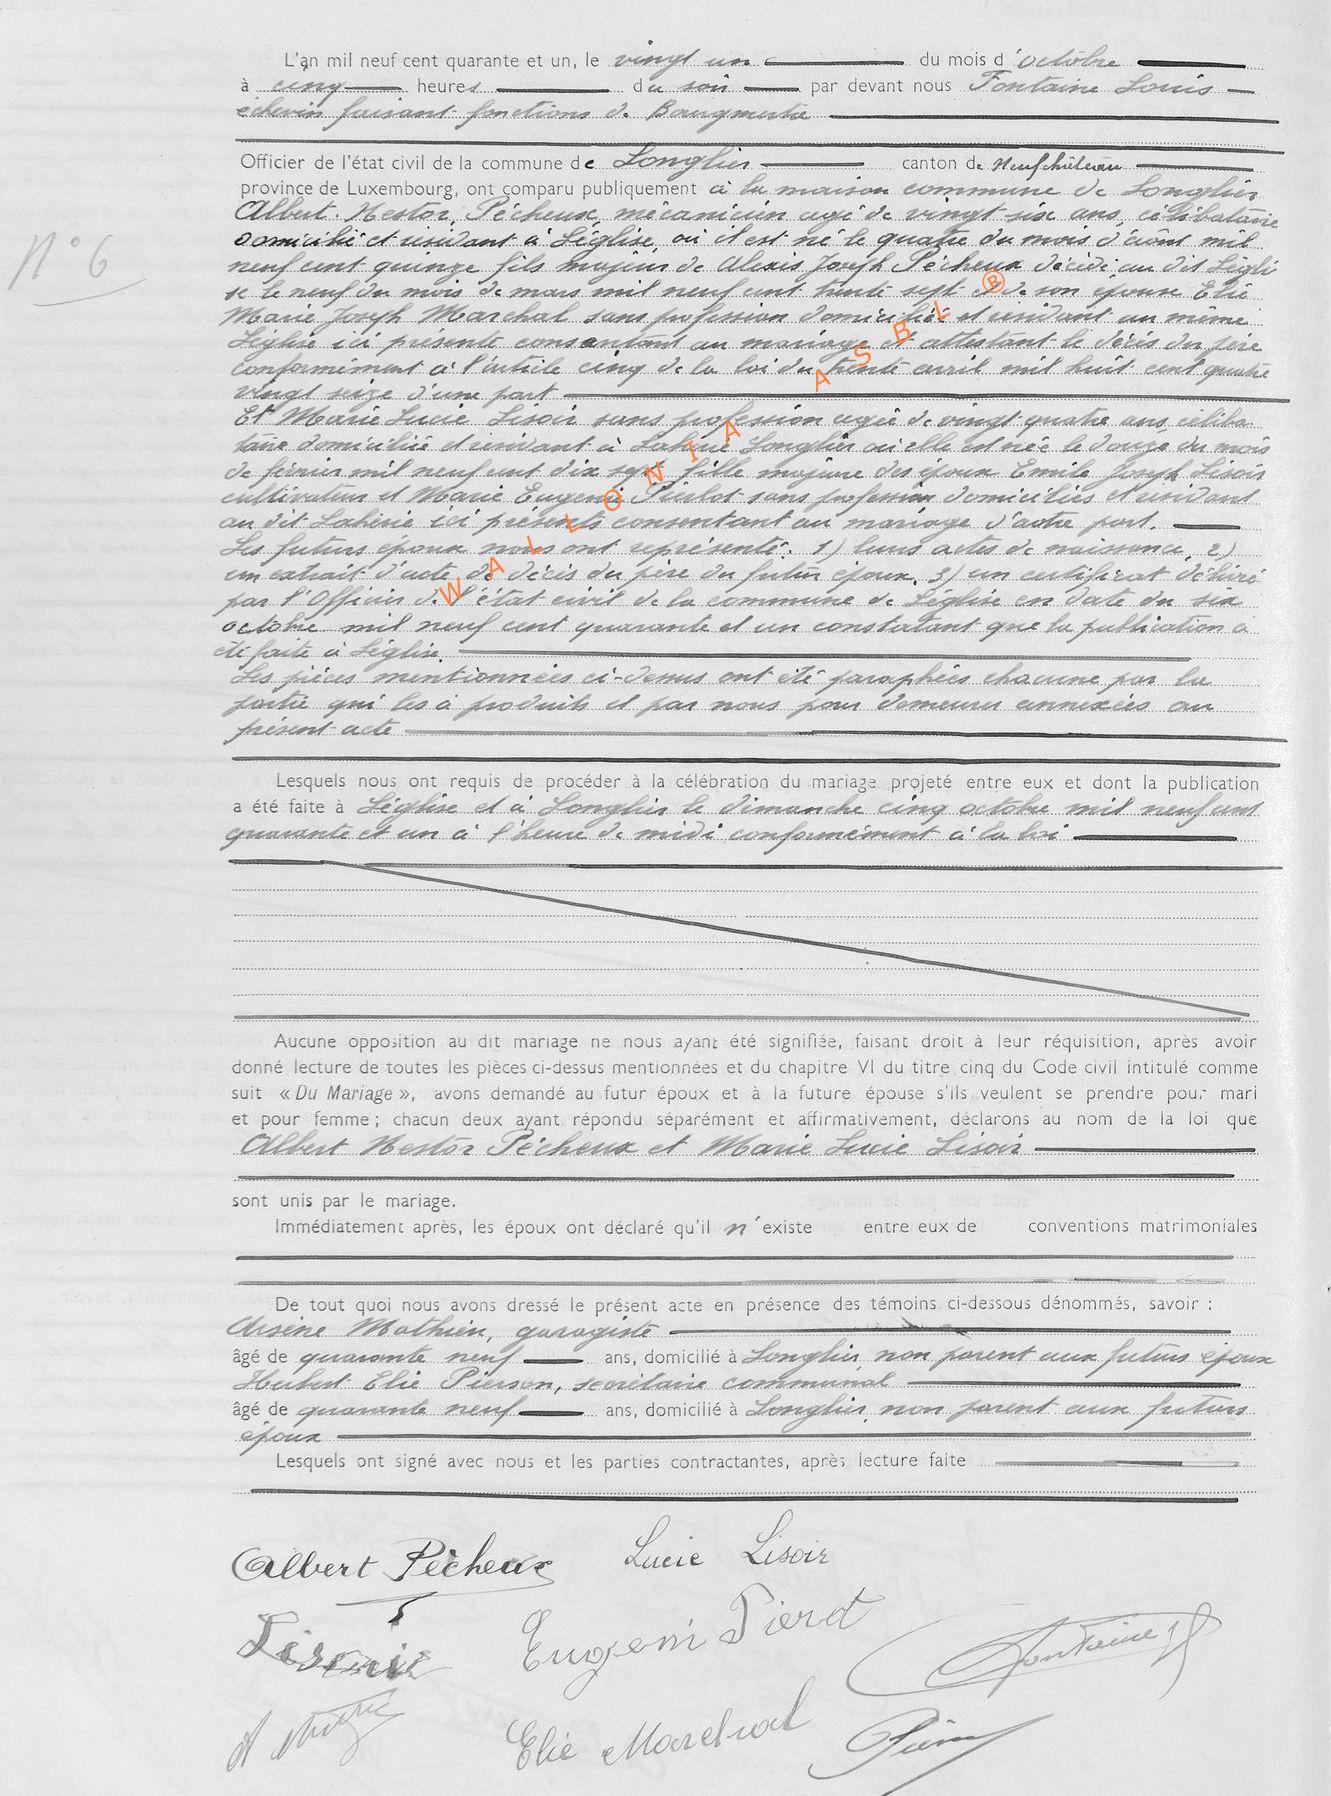 L'an mil neuf cent quarante et un, le vingt un du mois d'octobre
à cinq heures du soir par devant nous Fontaine Louis
échevin faisant fonctions de Bourgmestre
Officier de l'état civil de la commune de Longlier canton de Neufchâteau
province de Luxembourg, ont comparu publiquement à la maison commune de Longlier
Albert Nestor Pêcheux, mécanicien agé de vingt six ans, célibataire
N° 6
domicilié et résidant à Léglise, où il est né le quatre du mois d'août mil
neuf cent quinze fils majeur de Alexis Joseph Pêcheux décédé au dit Légli
se le neuf du mois de mars mil neuf cent trente sept et de son épouse Elie
Marie Joseph Marchal sans profession domiciliée et résidant au même
Léglise ici présente consentant au mariage et attestant le décès du père
conformément à l'article cinq de la loi du trente avril mil huit cent quatre
vingt seize d'une part
Et Marie Lucie Lisoir sans profession agée de vingt quatre ans céliba
taire domiciliée et résidant à Lahérie Longlier où elle est née le douze du mois
de février mil neuf cent dix sept fille majeure des époux Emile Joseph Lisoir
cultivateur et Marie Eugénie Pierlot sans profession domiciliés et résidant
au dit Lahérie ici présents consentant au mariage d'autre part.
Les futurs époux nous ont représenté : 1) leurs actes de naissance, 2)
un extrait d'acte de décès du père du futur époux, 3) un certificat délivré
par l'Officier de l'état civil de la commune de Léglise en date du six
octobre mil neuf cent quarante et un constatant que la publication a
été faite à Léglise.
Les pièces mentionnées ci-dessus ont été paraphées chacune par la
partie qui les a produits et par nous pour demeurer annexées au
présent acte
WALLONIA ASBL ®
Lesquels nous ont requis de procéder à la célébration du mariage projeté entre eux et dont la publication
a été faite à Léglise et à Longlier le dimanche cinq octobre mil neuf cent
quarante et un à l'heure de midi conformément à la loi
Aucune opposition au dit mariage ne nous ayant été signifiée, faisant droit à leur réquisition, après avoir
donné lecture de toutes les pièces ci-dessus mentionnées et du chapitre VI du titre cinq du Code civil intitulé comme
suit « Du Mariage », avons demandé au futur époux et à la future épouse s'ils veulent se prendre pour mari
et pour femme ; chacun deux ayant répondu séparément et affirmativement, déclarons au nom de la loi que
Albert Nestor Pêcheux et Marie Lucie Lisoir
sont unis par le mariage.
Immédiatement après, les époux ont déclaré qu'il n'existe entre eux de conventions matrimoniales
De tout quoi nous avons dressé le présent acte en présence des témoins ci-dessous dénommés, savoir :
Arsène Mathieu, garagiste
âgé de quarante neuf ans, domicilié à Longlier, non parent aux futurs époux
Hubert Elie Pierson, secrétaire communal
âgé de quarante neuf ans, domicilié à Longlier, non parent aux futurs
époux
Lesquels ont signé avec nous et les parties contractantes, après lecture faite
Albert Pêcheux Lucie Lisoir
Lisoir Eugenie Fontaine
Elie Marchal